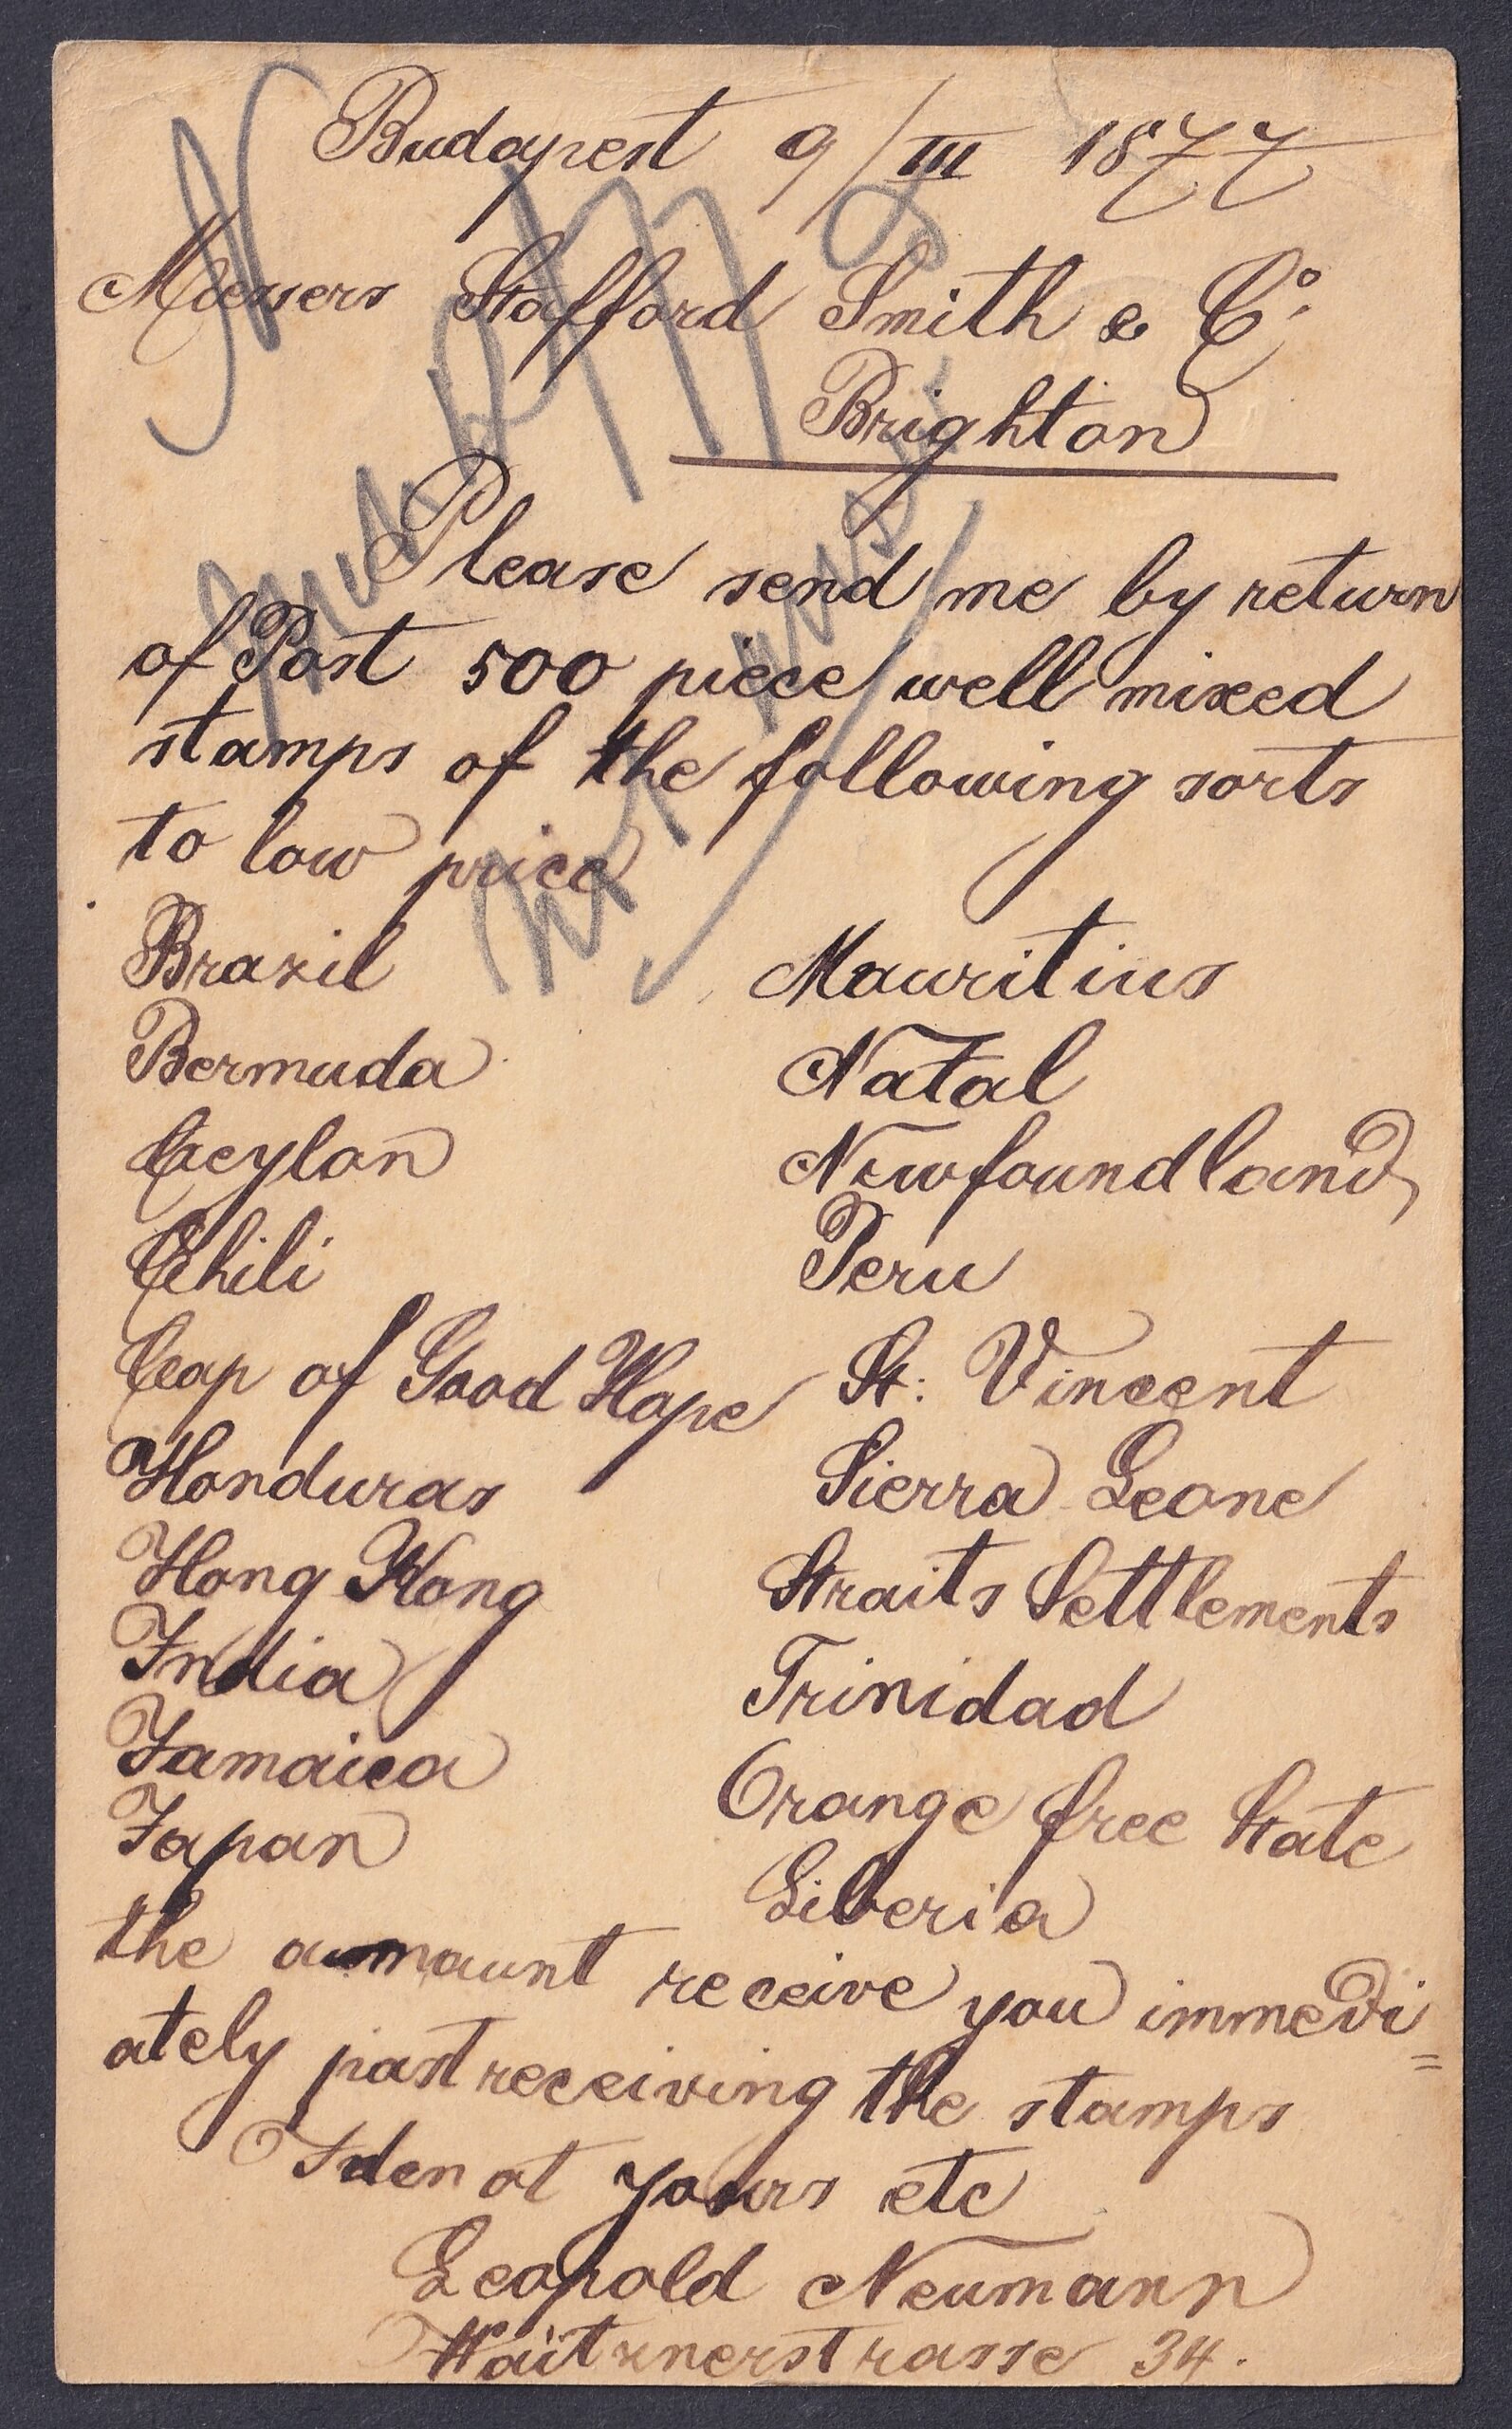 Budapest 9/III 1877
Messers Stafford Smith & Co.
Brighton
Please send me by return
of Post 500 piece well mixed
stamps of the following sorts
to low price
Brazil
Bermuda
Ceylon
Chili
Cap of Good Hope
Honduras
Hong Kong
India
Jamaica
Japan
Mauritius
Natal
Newfoundland
Peru
St: Vincent
Sierra Leone
Straits Settlements
Trinidad
Orange free State
Liberia
the amaunt receive you immedi=
ately past receiving the stamps
yours etc
Leopold Neumann
Waitznerstrasse 34.